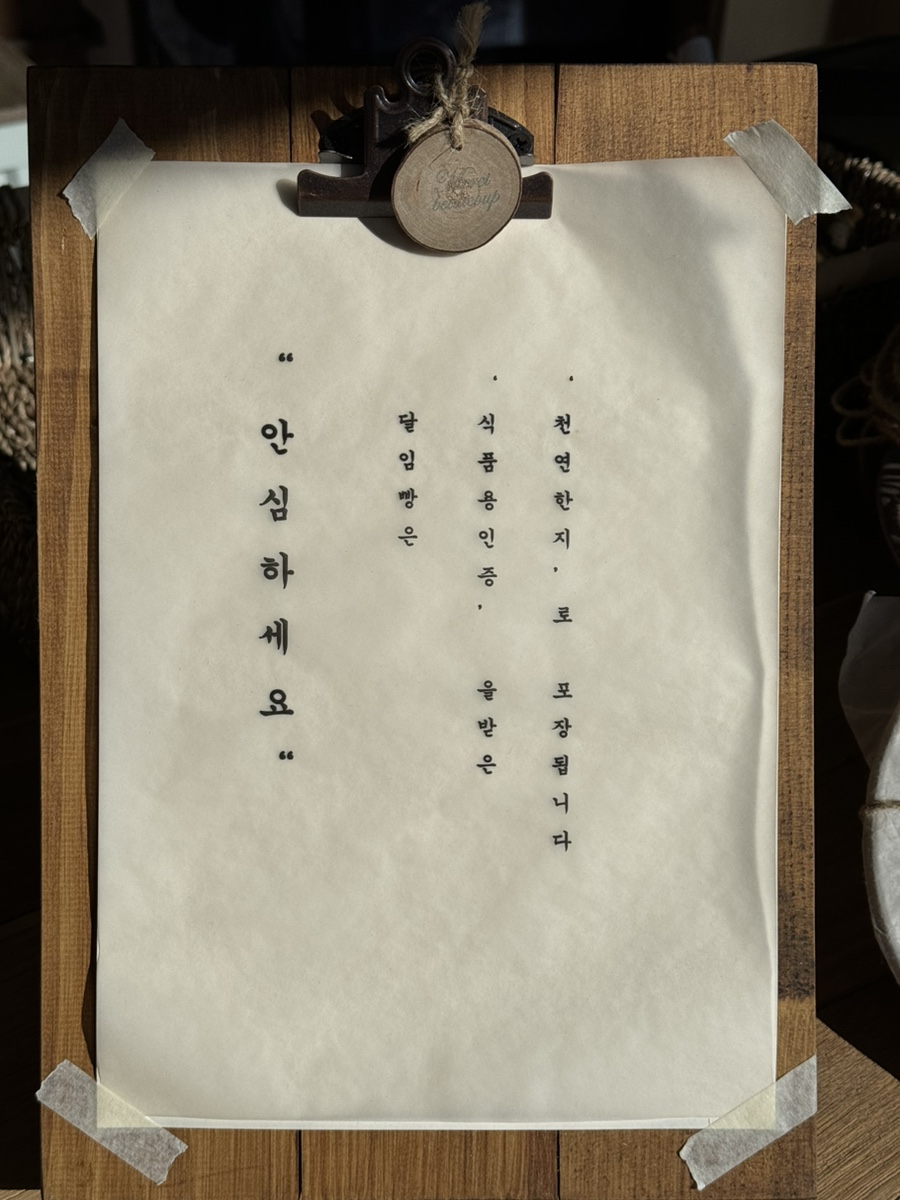 “안심하세요“
달임빵은
‘식품용인증’ 을받은
‘천연한지’로 포장됩니다
beaucoup